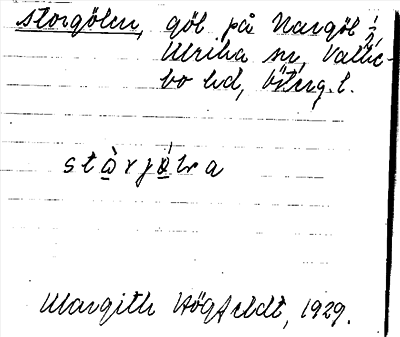 Storgölen, göl på Nargöl 1/2
Ulrika sn, Vallle-
bo hd, Österg. l.
stàrjǿlra
Margith Högfeldt, 1929.